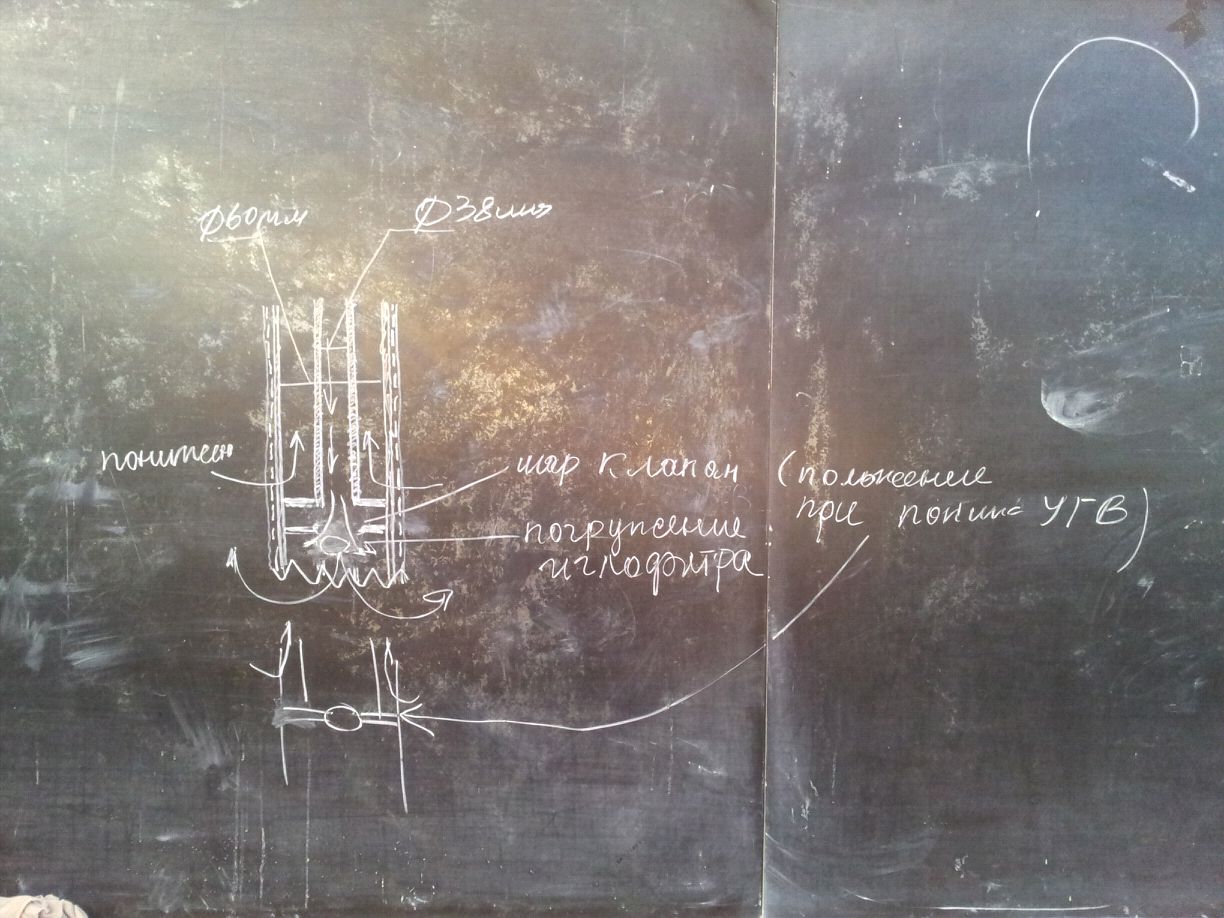 Ф60мм
Ф38мм
понижен
шар клапан
погружение
иглофтра
(положение
при пониж УГВ)